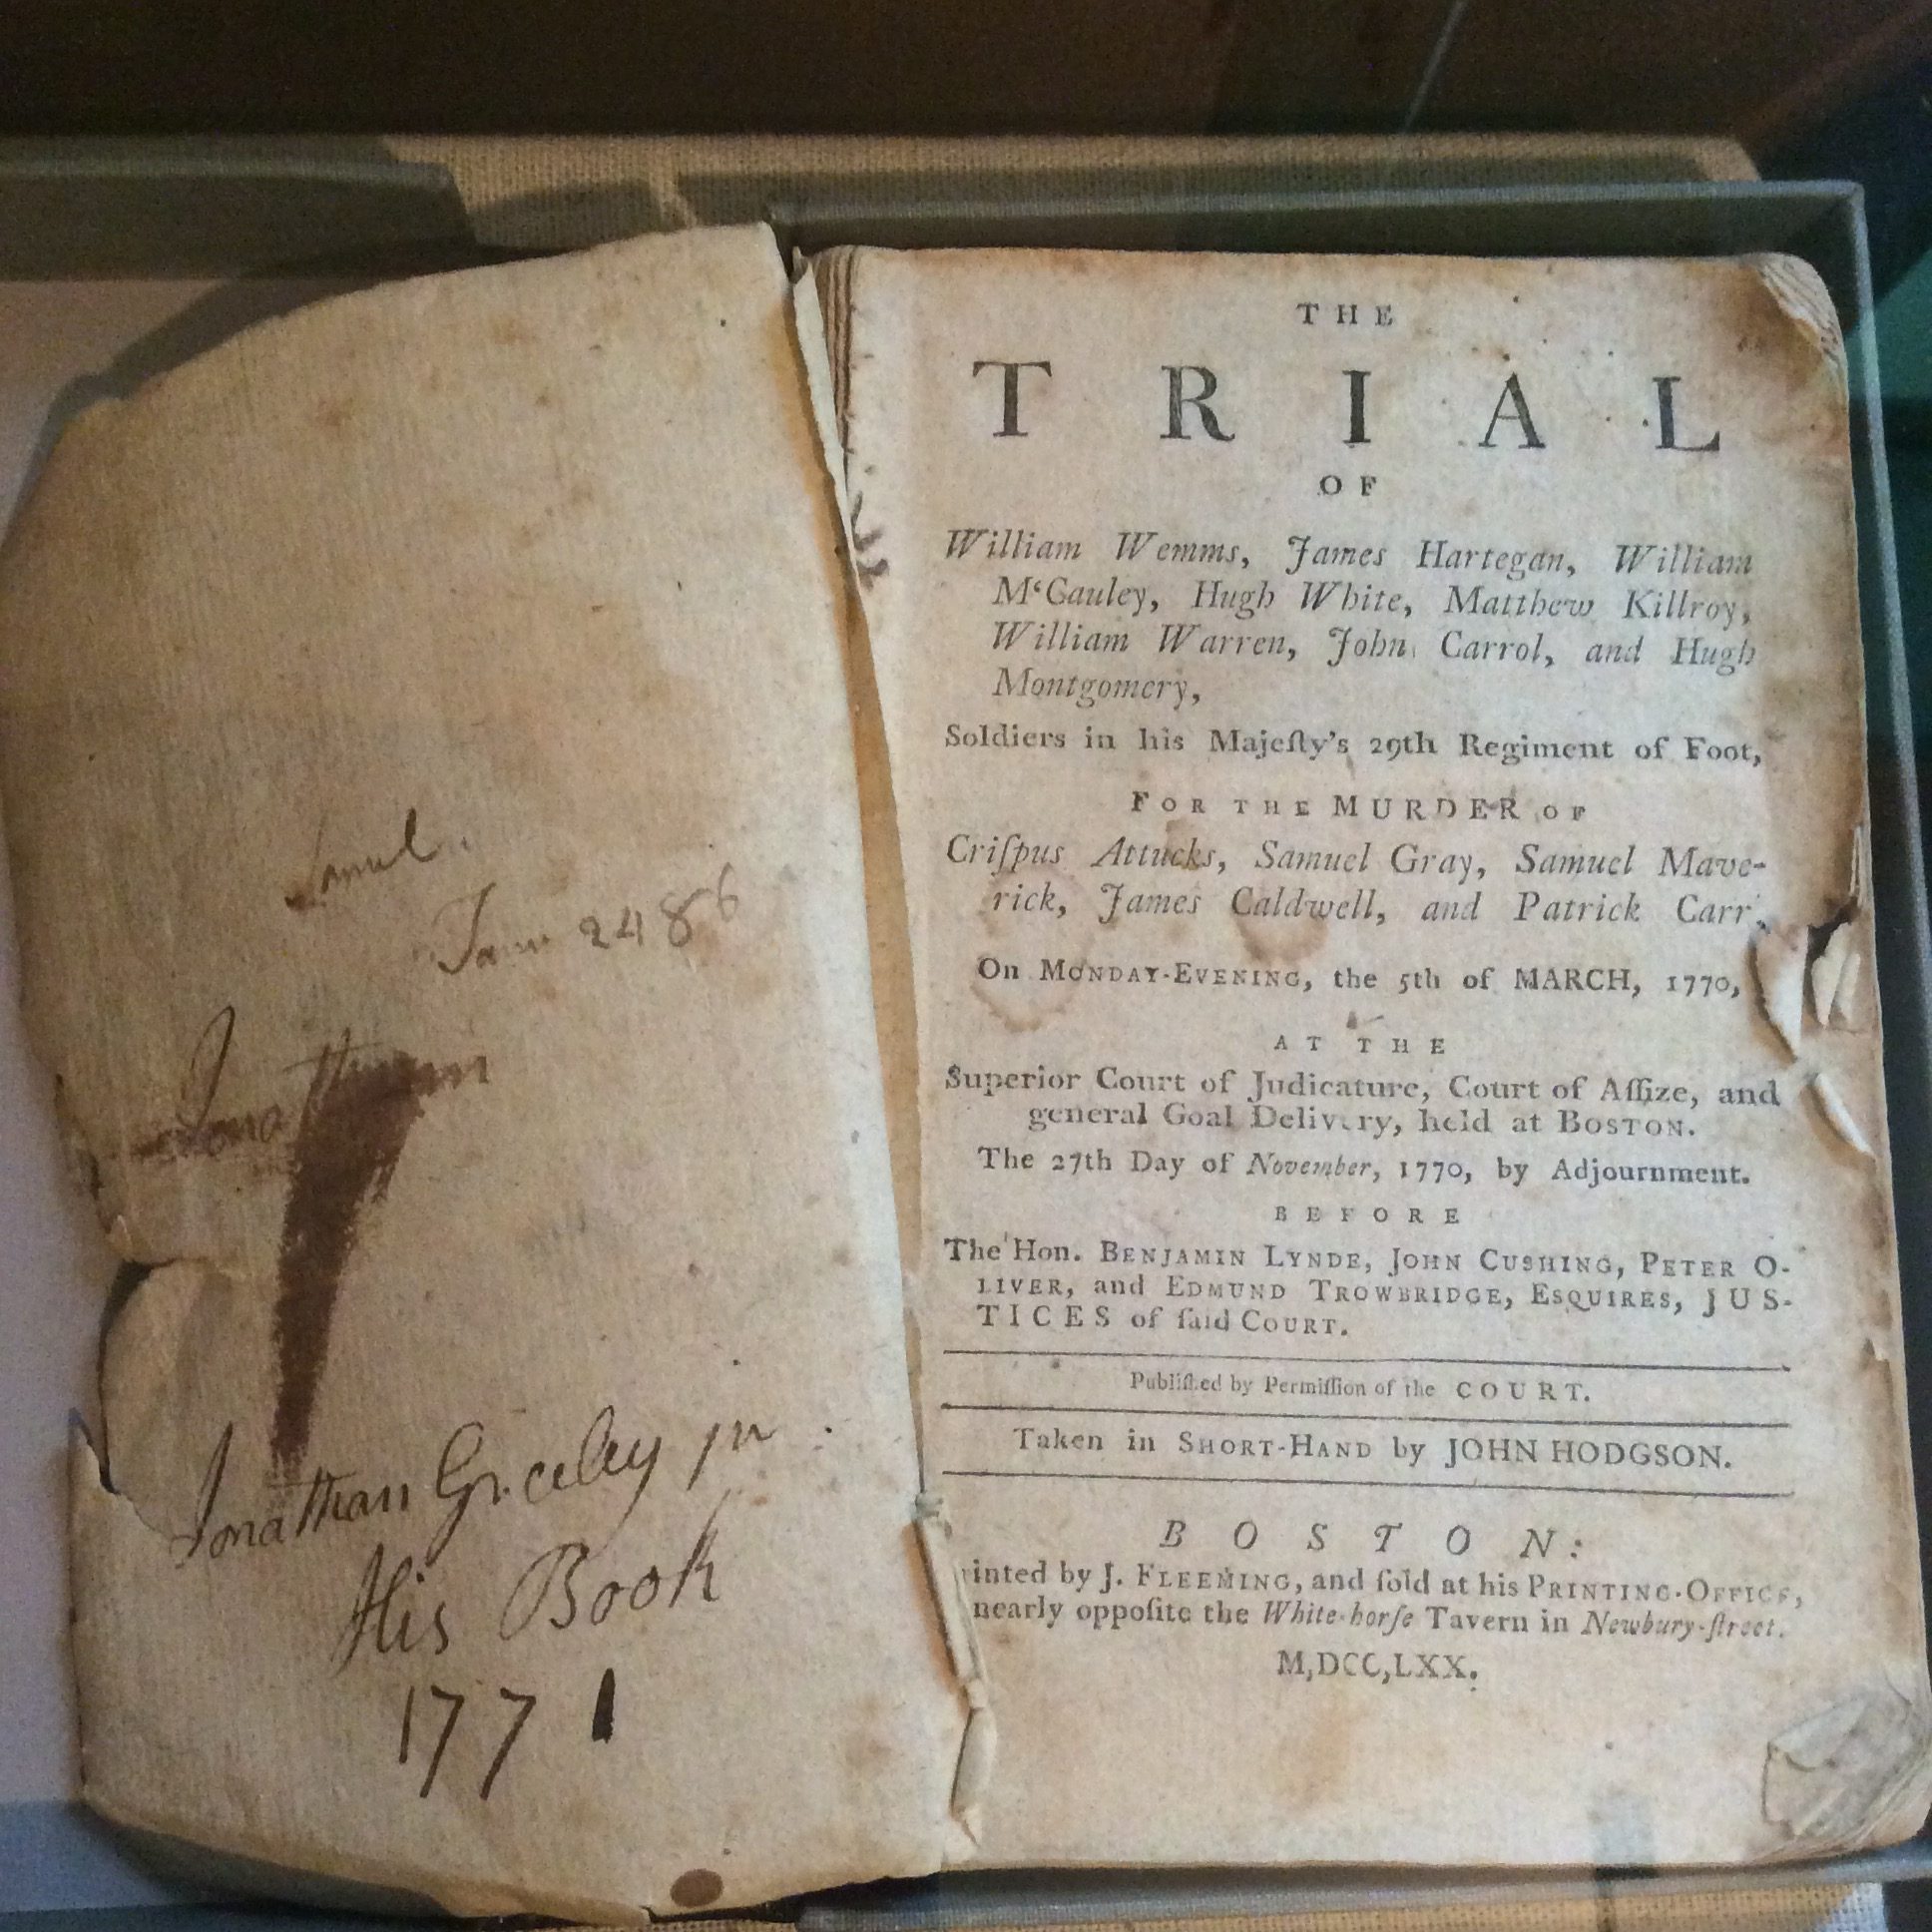 Samul
Jan 24 86
Jonathan
Jonathan Greeley jur
His Book
1771
THE
TRIAL
OF
William Wemms, James Hartegan, William
M‘Cauley, Hugh White, Matthew Killroy,
William Warren, John Carrol, and Hugh
Montgomery,
Soldiers in his Majeſty's 29th Regiment of Foot,
FOR THE MURDER OF
Criſpus Attucks, Samuel Gray, Samuel Mave-
rick, James Caldwell, and Patrick Carr,
On MONDAY-EVENING, the 5th of MARCH, 1770,
AT THE
Superior Court of Judicature, Court of Aſſize, and
general Goal Delivery, held at BOSTON.
The 27th Day of November, 1770, by Adjournment.
BEFORE
The Hon. BENJAMIN LYNDE, JOHN CUSHING, PETER O-
LIVER, and EDMUND TROWBRIDGE, ESQUIRES, JUS-
TICES of ſaid COURT.
Publiſhed by Permiſſion of the COURT.
Taken in SHORT-HAND by JOHN HODGSON.
BOSTON:
rinted by J. FLEEMING, and ſold at his PRINTING-OFFICE,
nearly oppoſite the White-horſe Tavern in Newbury-ſtreet.
M,DCC,LXX.